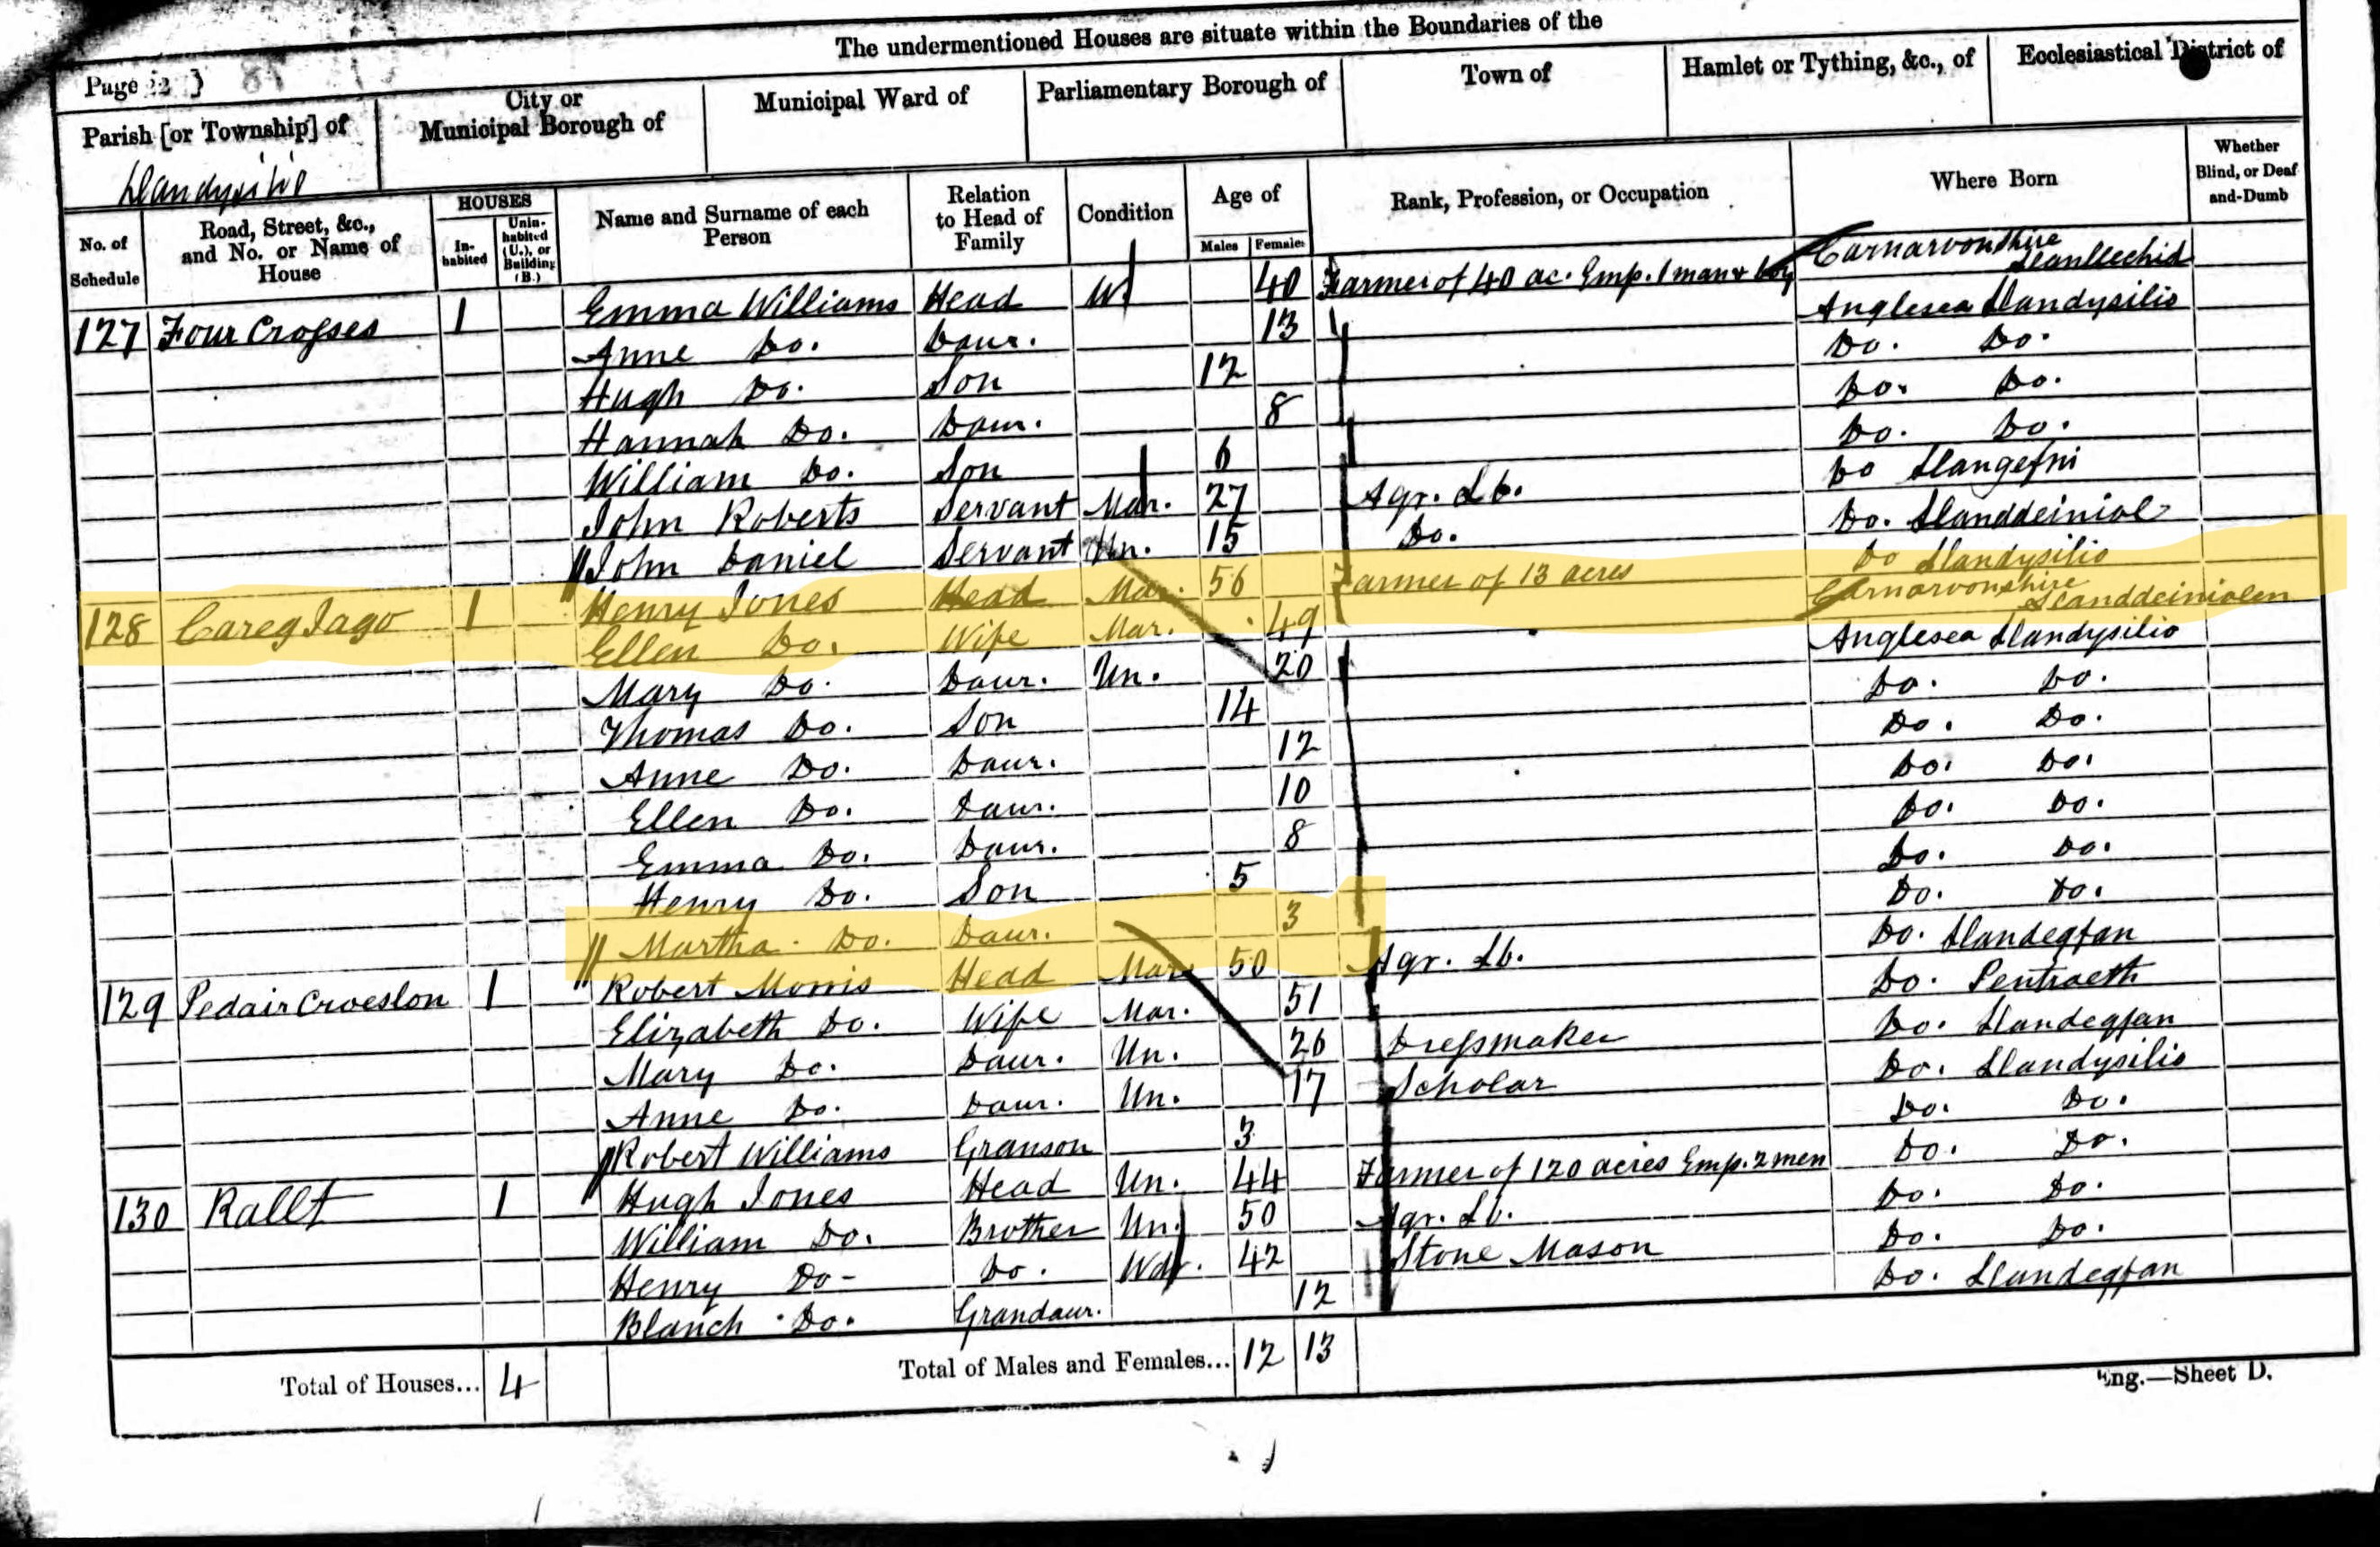 The undermentioned Houses are situate within the Boundaries of the
Page 22
Parish [or Township] of
Llandysilio
City or Municipal Borough of
Municipal Ward of
Parliamentary Borough of
Town of
Hamlet or Tything, &c., of
Ecclesiastical District of
No. of Schedule
Road, Street, &c., and No. or Name of House
HOUSES
In-habited
Unin-habited (U.), or Building (B.)
Name and Surname of each Person
Relation to Head of Family
Condition
Age of
Males
Females
Rank, Profession, or Occupation
Where Born
Whether Blind, or Deaf-and-Dumb
127 Four Crosses 1 Emma Williams Head W 40 Farmer of 40 ac. Emp. 1 man & boy Carnarvonshire Llanllechid
Anne Do. Daur. 13 Anglesea Llandysilio
Hugh Do. Son 12 Do. Do.
Hannah Do. Daur. 8 Do. Do.
William Do. Son 6 Do. Do.
John Roberts Servant Mar. 27 Agr. Lb. Do Llangefni
John Daniel Servant Un. 15 Do. Do. Llanddeiniol
128 Careg Iago 1 Henry Jones Head Mar. 56 Farmer of 13 acres Do Llandysilio
Ellen Do. Wife Mar. 49 Carnarvonshire Llanddeiniolen
Mary Do. Daur. Un. 20 Anglesea Llandysilio
Thomas Do. Son 14 Do. Do.
Anne Do. Daur. 12 Do. Do.
Ellen Do. Daur. 10 Do. Do.
Emma Do. Daur. 8 Do. Do.
Henry Do. Son 5 Do. Do.
Martha Do. Daur. 3 Do. Do.
129 Pedair Croeslon 1 Robert Morris Head Mar. 50 Agr. Lb. Do. Llandegfan
Elizabeth Do. Wife Mar. 51 Do. Pentraeth
Mary Do. Daur. Un. 26 Dressmaker Do. Llandegfan
Anne Do. Daur. Un. 17 Scholar Do. Llandysilio
Robert Williams Granson 3 Do. Do.
130 Rallt 1 Hugh Jones Head Un. 44 Farmer of 120 acres Emp. 2 men Do. Do.
William Do. Brother Un. 50 Agr. Lb. Do. Do.
Henry Do- Do. Wdr. 42 Stone Mason Do. Do.
Blanch Do. Grandaur. 12 Do. Llandegfan
Total of Houses... 4
Total of Males and Females... 12 13
Eng.—Sheet D.